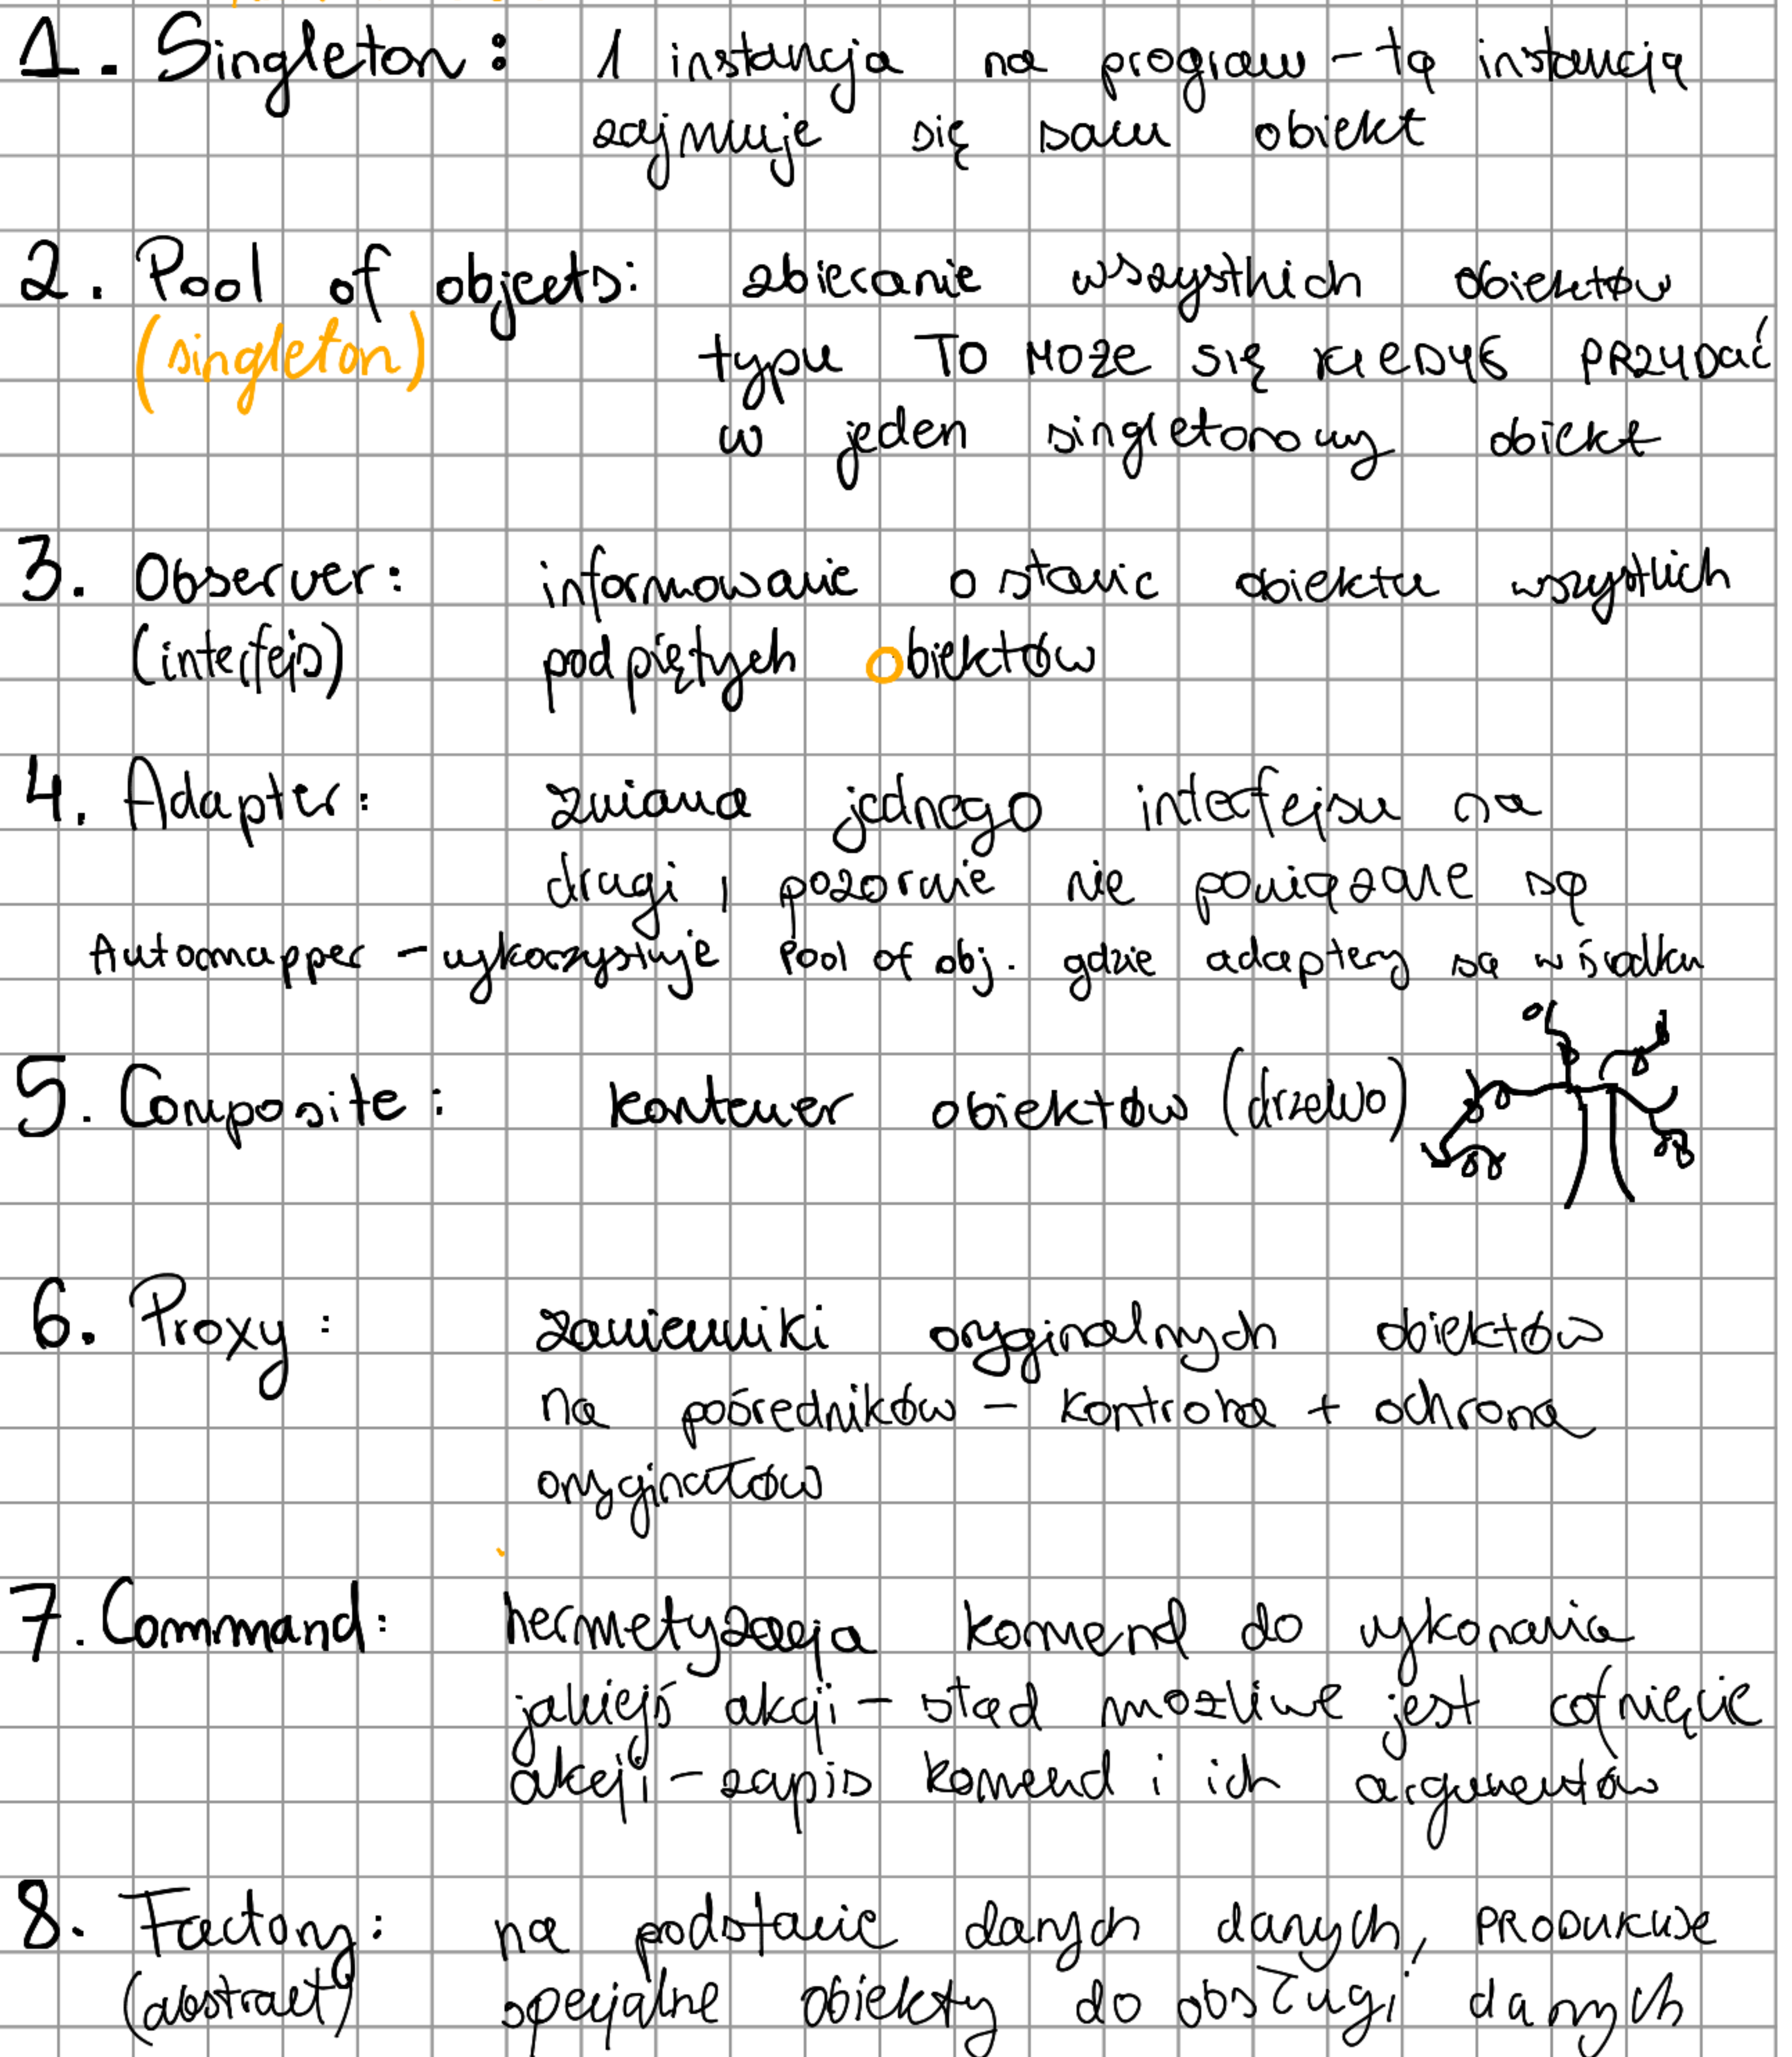 1. Singleton: 1 instancja na program - tą instancją
zajmuje się sam obiekt
2. Pool of objects: zbieranie wszystkich obiektów
(singleton) typu TO MOŻE SIĘ KIEDYŚ PRZYDAĆ
w jeden singletonowy obiekt
3. Observer: informowanie o stanie obiektu wszystkich
(interfejs) podpiętych obiektów
4. Adapter: zmiana jednego interfejsu na
drugi, pozornie nie powiązane są
Automapper - wykorzystuje Pool of obj. gdzie adaptery są w środku
5. Composite: kontener obiektów (drzewo)
6. Proxy: zamienniki oryginalnych obiektów
na pośredników - kontrola + ochrona
oryginałów
7. Command: hermetyzacja komend do wykonania
jakiejś akcji - stąd możliwe jest cofnięcie
akcji - zapis komend i ich argumentów
8. Factory: na podstawie danych danych, PRODUKUJE
(abstract) specjalne obiekty do obsługi danych